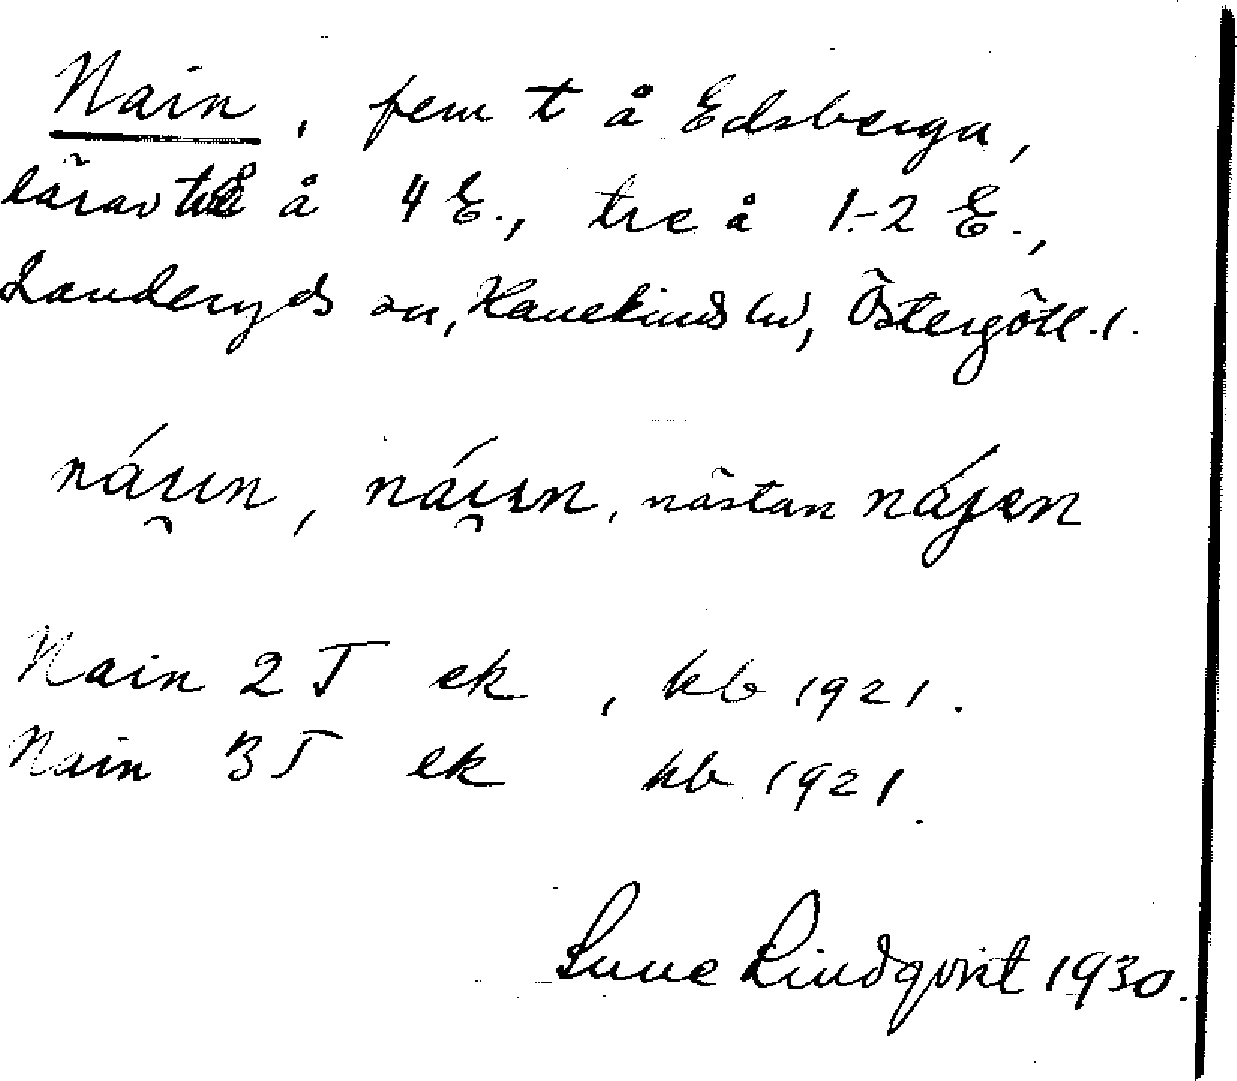 Nain, fem t å Edsberga,
härav två å 4 E., tre å 1-2 E.,
Landeryds sn, Hanekinds hd, Östergötl. l.
náɪ̯ɪn, náɪ̯ɪn, nästan nájen
Nain 2 J ek, kb 1921.
Nain 3 J ek kb 1921.
Sune Lindqvist 1930.